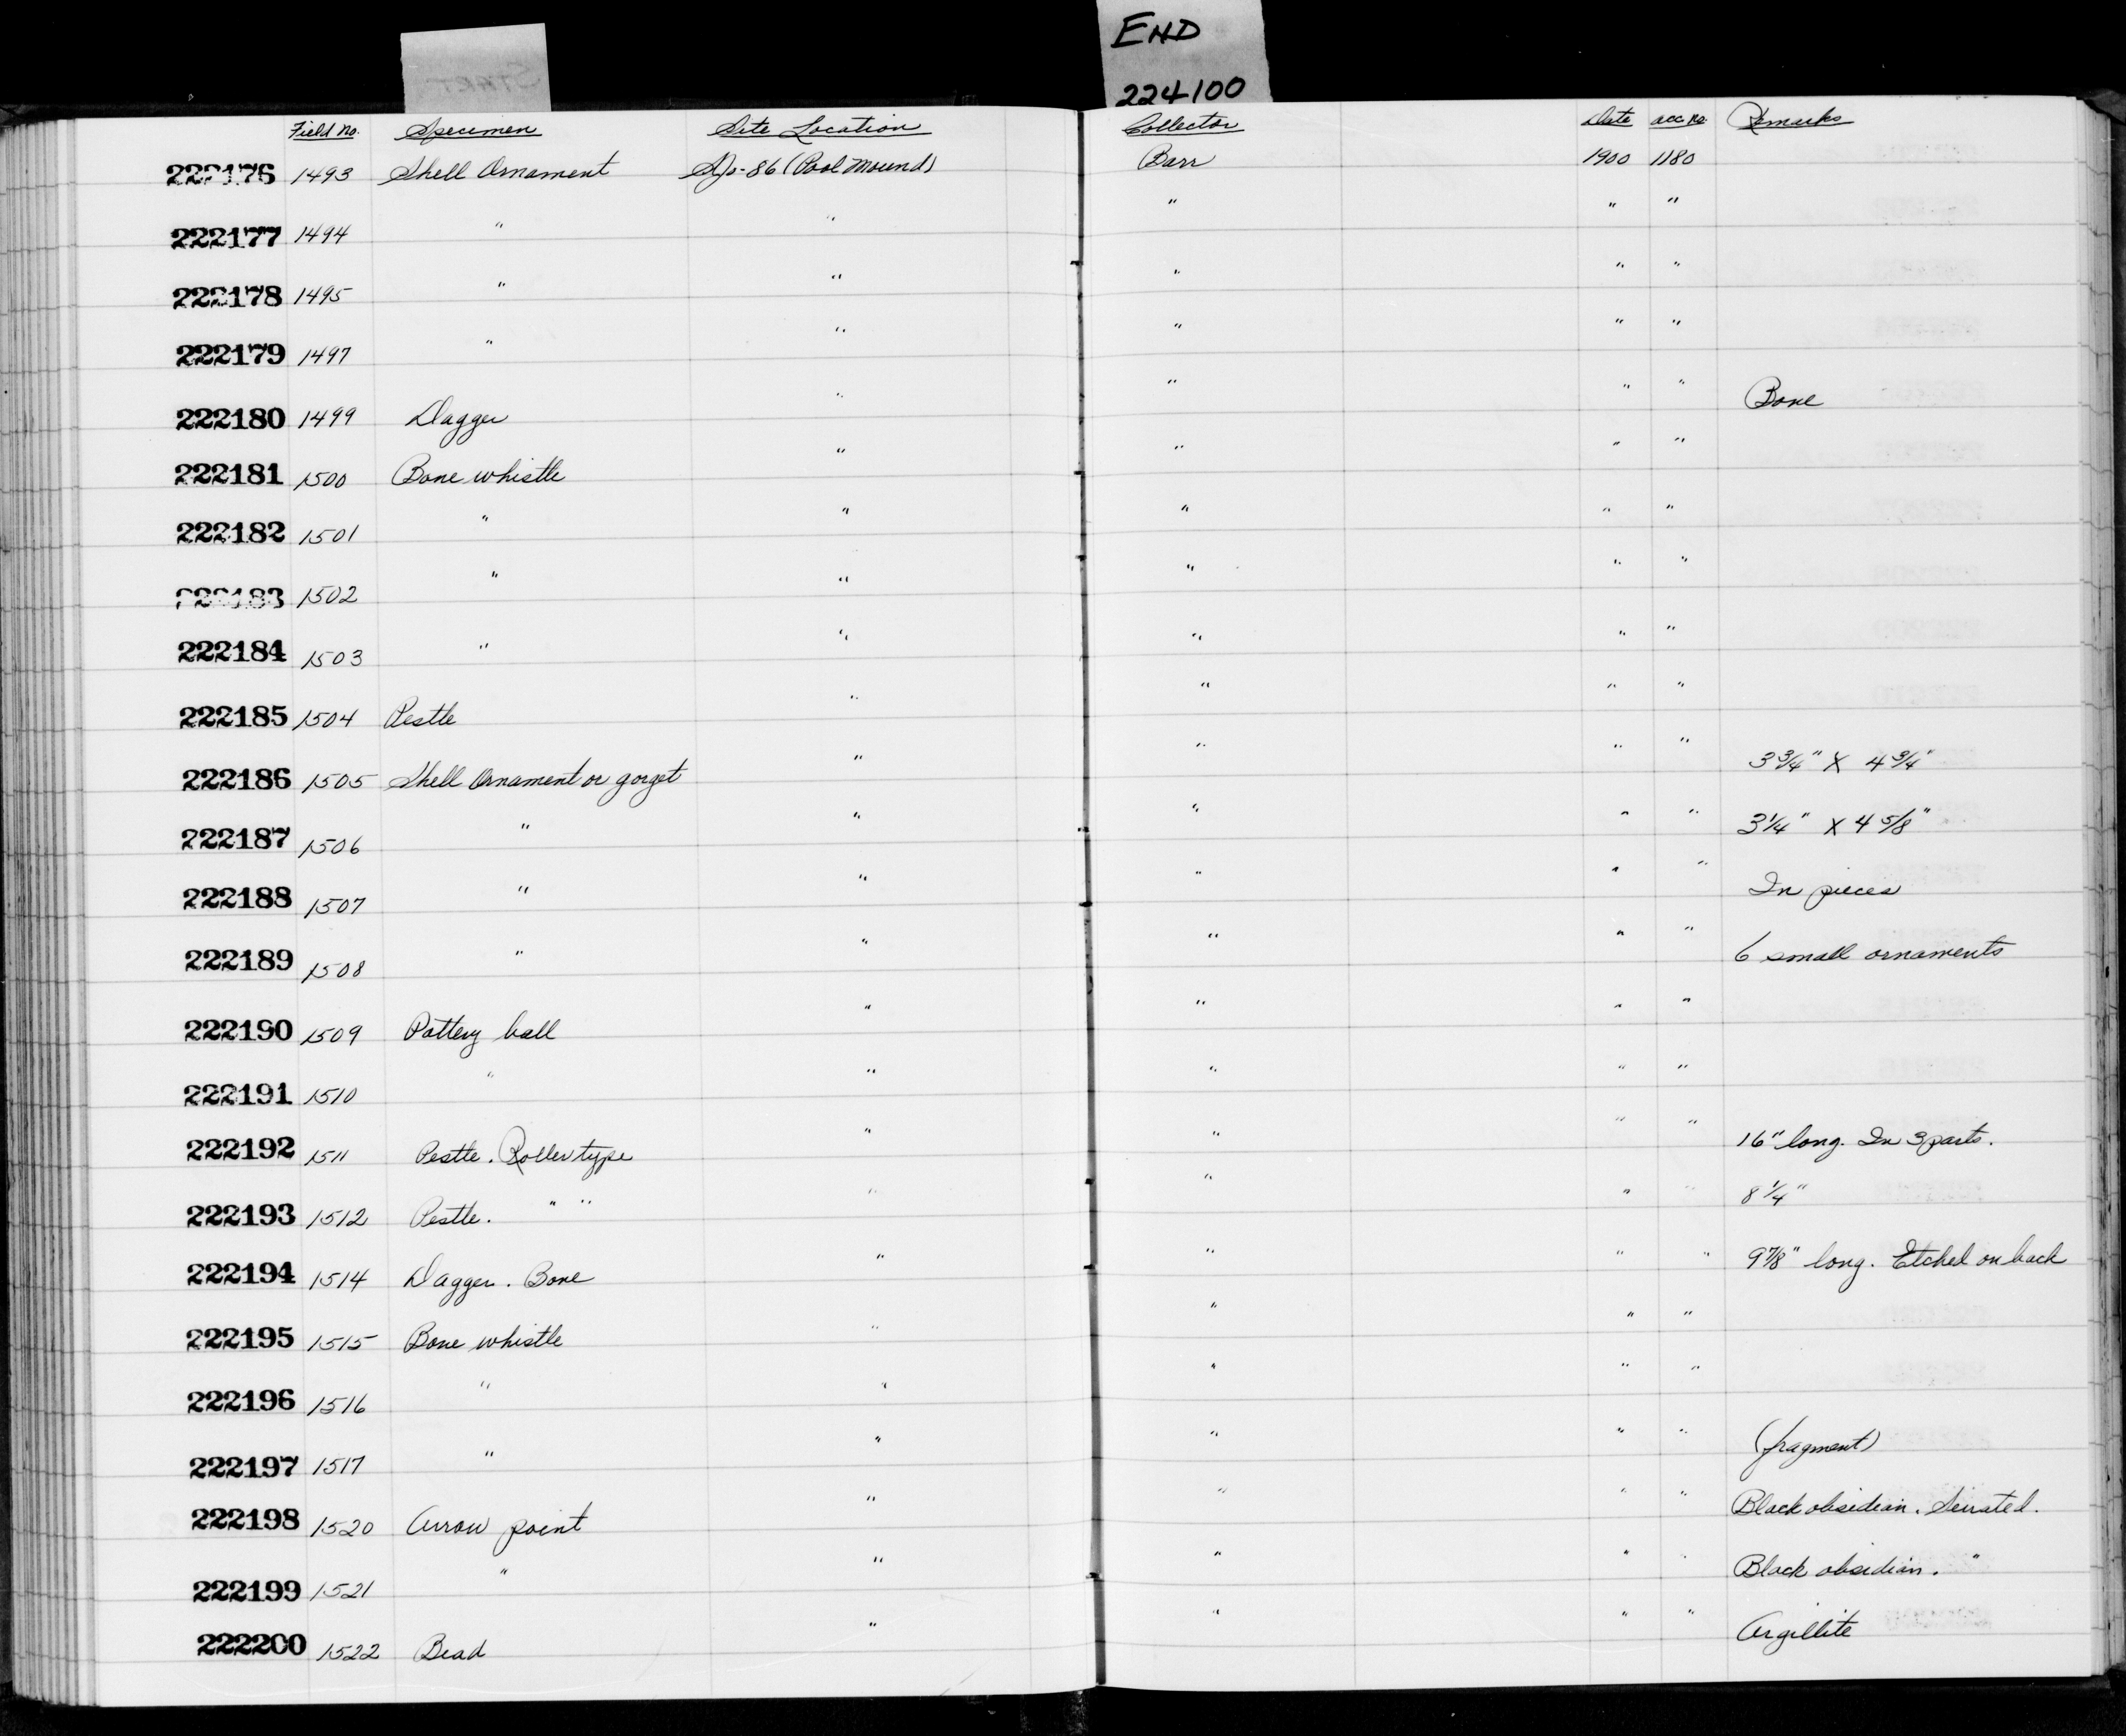 END
224100
START
Field No. Specimen Site Location Collector Date acc no. Remarks
222176 1493 Shell Ornament SJo-86 (Pool Mound) Barr 1900 1180
222177 1494 " " " " "
222178 1495 " " " " "
222179 1497 " " " " "
222180 1499 Dagger " " " " Bone
222181 1500 Bone whistle " " " "
222182 1501 " " " " "
222183 1502 " " " " "
222184 1503 " " " " "
222185 1504 Pestle " " " "
222186 1505 Shell Ornament or gorget " " " " 3 3/4" X 4 3/4"
222187 1506 " " " " " 3 1/4" X 4 5/8"
222188 1507 " " " " " In pieces
222189 1508 " " " " " 6 small ornaments
222190 1509 Pottery ball " " " "
222191 1510 " " " " "
222192 1511 Pestle. Roller type " " " " 16" long. In 3 parts.
222193 1512 Pestle. " " " " " " 8 1/4"
222194 1514 Dagger. Bone " " " " 9 7/8" long. Etched on back
222195 1515 Bone whistle " " " "
222196 1516 " " " " "
222197 1517 " " " " " (fragment)
222198 1520 Arrow point " " " " Black obsidian. Serrated.
222199 1521 " " " " " Black obsidian. "
222200 1522 Bead " " " " Argillite